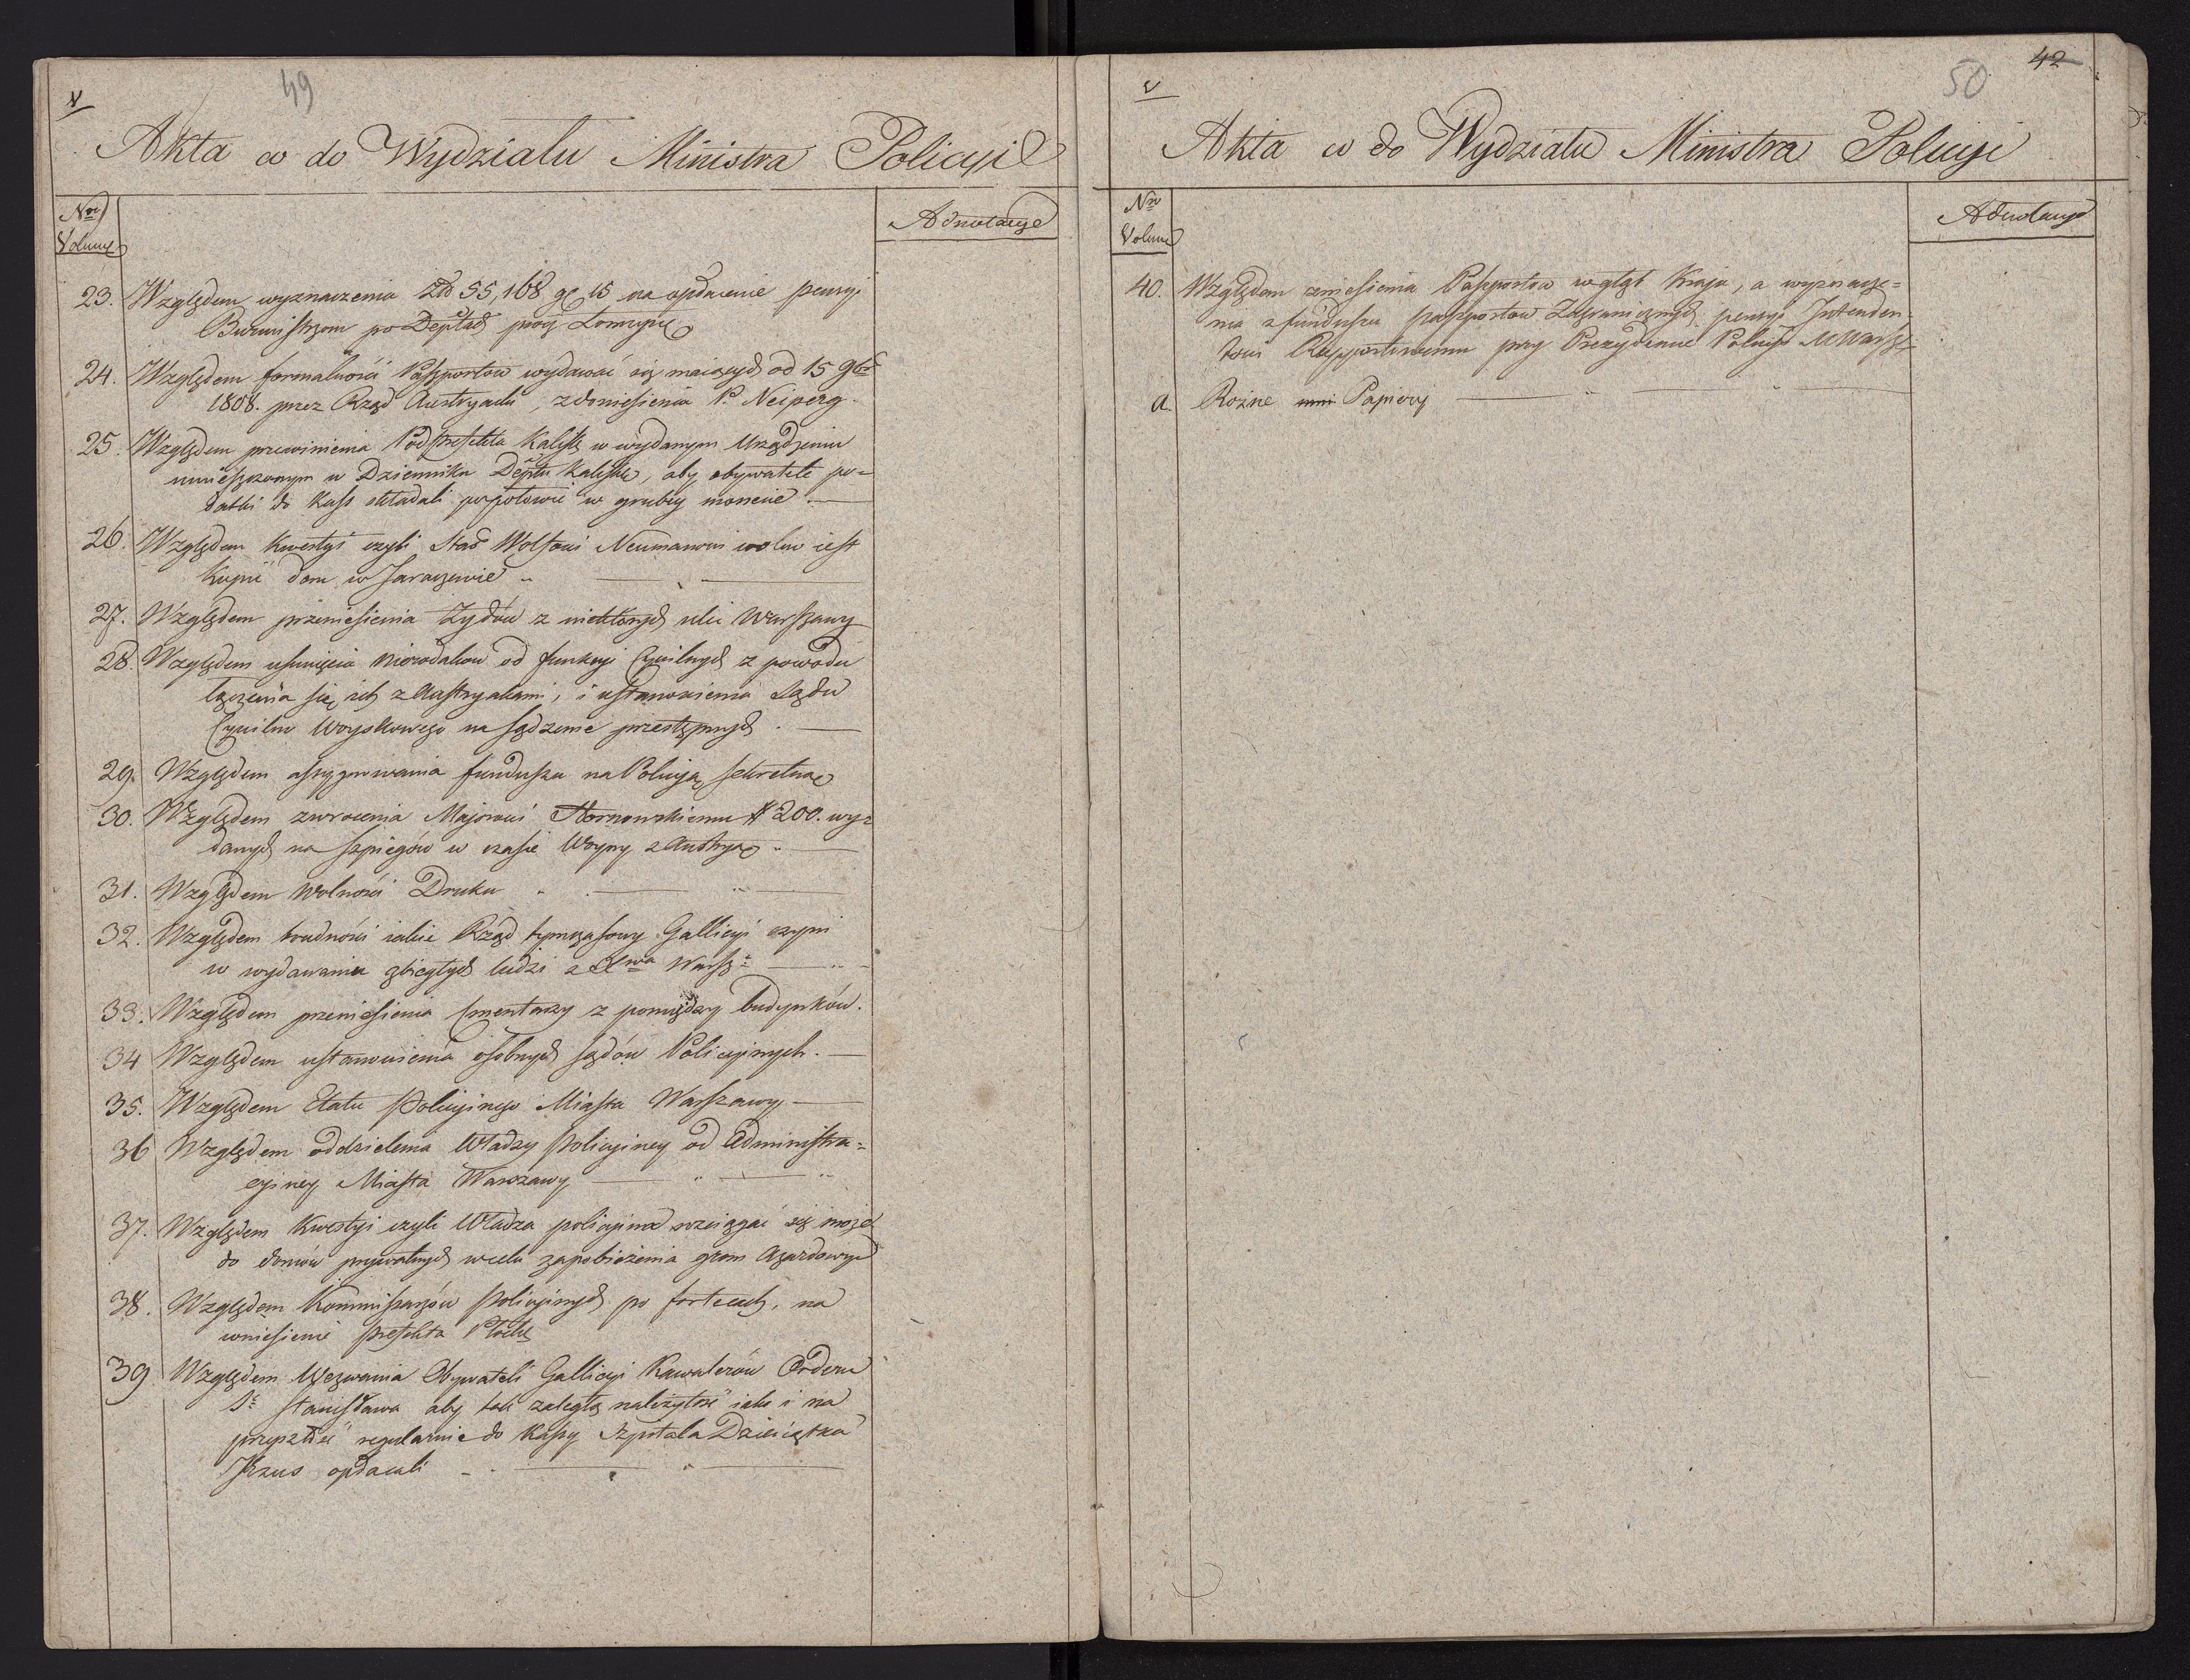 V
49
Akta co do Wydziału Ministra Policyi
Nro
Volum
Adnotacye
23. Względem wyznaczenia Złl 55,168 gr 15 na opłacenie pensyi
Burmistrzom po Deptach
24. Względem formalności Passportow wydawać się maiących od 15 9br
1808. przez Rząd Austryacki, z doniesienia P. Neiperg.
25. Względem przewinienia Podprefekta Kalisk w wydanym Urządzeniu
umieszczonym w Dzienniku Deptu Kalisk, aby obywatele po=
datki do Kass składali po połowie w grubey monecie.
26. Względem Kwestyi czyli Wolfowi Neumanowi wolno iest
Kupić dom w Jaraczewie
27. Względem przeniesienia Żydów z niektórych ulic Warszawy
28. Względem usunięcia Nierodakow od funkcyi Cywilnych z powodu
łączenia się ich z Austryakami, i ustanowienia Sądu
Cywilno Woyskowego na sądzenie przestępnych.
29. Względem assygnowania funduszu na Policyą sekretną
30. Względem zwrócenia Majorowi Hornowskiemu # 200. wy=
danych na szpiegów w czasie Woyny z Austryą
31. Względem Wolności Druku
32. Względem trudności iakie Rząd tymczasowy Gallicyi czyni
w wydawaniu zbiegłych ludzi z Xtwa Warsz:
33. Względem przeniesienia Cmentarzy z pomiędzy budynków.
34 Względem ustanowienia osobnych sądów Policyinych.
35. Względem Etatu Policyinego Miasta Warszawy
36 Względem oddzielenia Władzy Policyiney od Administra=
cyiney Miasta Warszawy
37. Względem Kwestyi czyli Władza policyina rozciągać się może
do domów prywatnych w celu zapobieżenia grom Azardowym
38. Względem Kommissarzów Policyinych po fortecach, na
wniesienie Prefekta Płock
39 Względem Wezwania Obywateli Gallicyi Kawalerów Orderu
St: Stanisława aby tak zaległą należytość iako i na
przyszłość regularnie do Kassy Szpitala Dzieciątka
Jezus opłacali
V
50
42
Akta co do Wydziału Ministra Policyi
Nro
Volum
Adnotacye
40. Względem zniesienia Passportow w głąb Kraju, a wyznacze=
nia z funduszu passportow Zagranicznych pensyi Intenden
towi Raportowemu przy Prezydencie Policyi M Warsz
a. Rożne Papiery